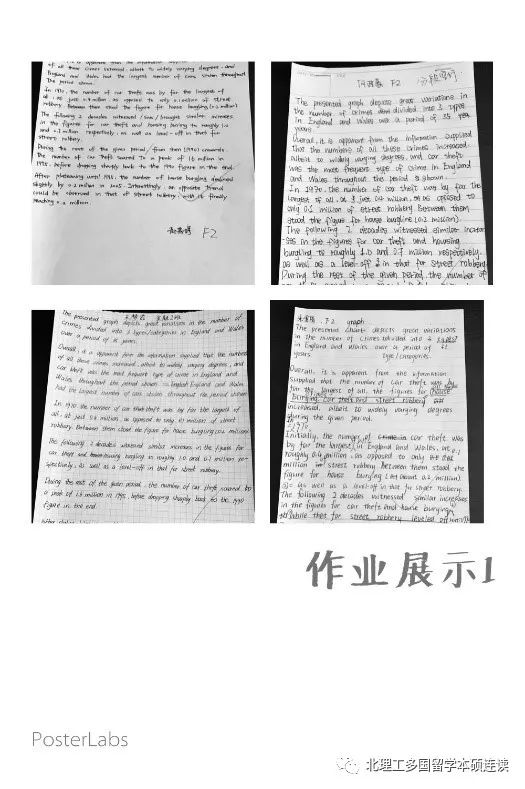 of all these crimes increased, albeit to widely varying degrees, and
England and Wales had the largest number of crimes stolen throughout
The period shown.
In 1970, the number of car theft was by far the largest of
all, at just 0.4 million, as opposed to only 0.1 million of street
robbery. Between them stood the figure for house burgling (0.2 million)
The following 2 decades witnessed similar increases
in the figures for car theft and housing burgling to roughly 1.0
and 0.7 million respectively, as well as level-off in that for
street robbery.
During the rest of the given period / from then (1990) onwards
The number of car theft soared to a peak of 1.6 million in
1995, before dropping sharply back to the 1990 figure in the end.
After plateauing until 1995, the number of house burgling declined
slightly by 0.2 million in 2005. Interestingly, an opposite trend
could be observed in that of street robbery, with it finally
reaching 0.2 million.
F2
F2
The presented graph depicts great variations in
the number of crimes divided into 3 types
in England and Wales over a period of 35
years
Overall, it is apparent from the information supplied
that the numbers of all these crimes increased,
albeit to widely varying degrees, and car theft
was the most frequent type of crime in England
and Wales throughout the period shown.
In 1970, the number of car theft was by far the
largest of all, at just 0.4 million, as opposed to
only 0.1 million of street robbery. Between them
stood the figure for house burgling (0.2 million)
The following 2 decades witnessed similar increa-
ses in the figures for car theft and housing
burgling to roughly 1.0 and 0.7 million respectively,
as well as a level-off in that for street robbery.
During the rest of the given period, the number of
The presented graph depicts great variations in the number of
crimes divided into 3 types/categories in England and Wales
over a period of 35 years.
Overall, it is apparent from the information supplied that the numbers
of all these crimes increased, albeit to widely varying degrees, and
car theft was the most frequent type of crime in England and
Wales throughout the period shown
had the largest number of cars stolen throughout the period shown
In 1970 the number of car theft was by far the largest of
all, at just 0.4 million, as opposed to only 0.1 million of street
robbery. Between them stood the figure for house burgling (0.2 million)
The following 2 decades witnessed similar increases in the figures for
car theft and housing burgling to roughly 1.0 and 0.7 million res-
pectively, as well as a level-off in that for street robbery.
During the rest of the given period, the number of car theft soared to
a peak of 1.6 million in 1995 before dropping sharply back to the 1990
figure in the end.
F2 graph
The presented chart depicts great variations
in the number of crimes divided into 3
in England and Wales over a period of
years. type/categories.
Overall, is is apparent from the information
supplied that the number of car theft was by far
for the largest of all, the figures for house
burging, car theft and street robbery
increased, albeit to widely varying degrees
during the given period.
In 1970,
Initially, the number of crimes in car theft was
by far the largest, in England and Wales, at
roughly 0.4 million, as opposed to only 0.1
million in street robbery. Between them stood the
figure for house burging (at about 0.2 million)
as well as a level-off in that for street robbery.
The following 2 decades witnessed similar increases
in the figures for car theft and house burging
while that for street robbery leveled off
作业展示1
PosterLabs
北理工多国留学本硕连读